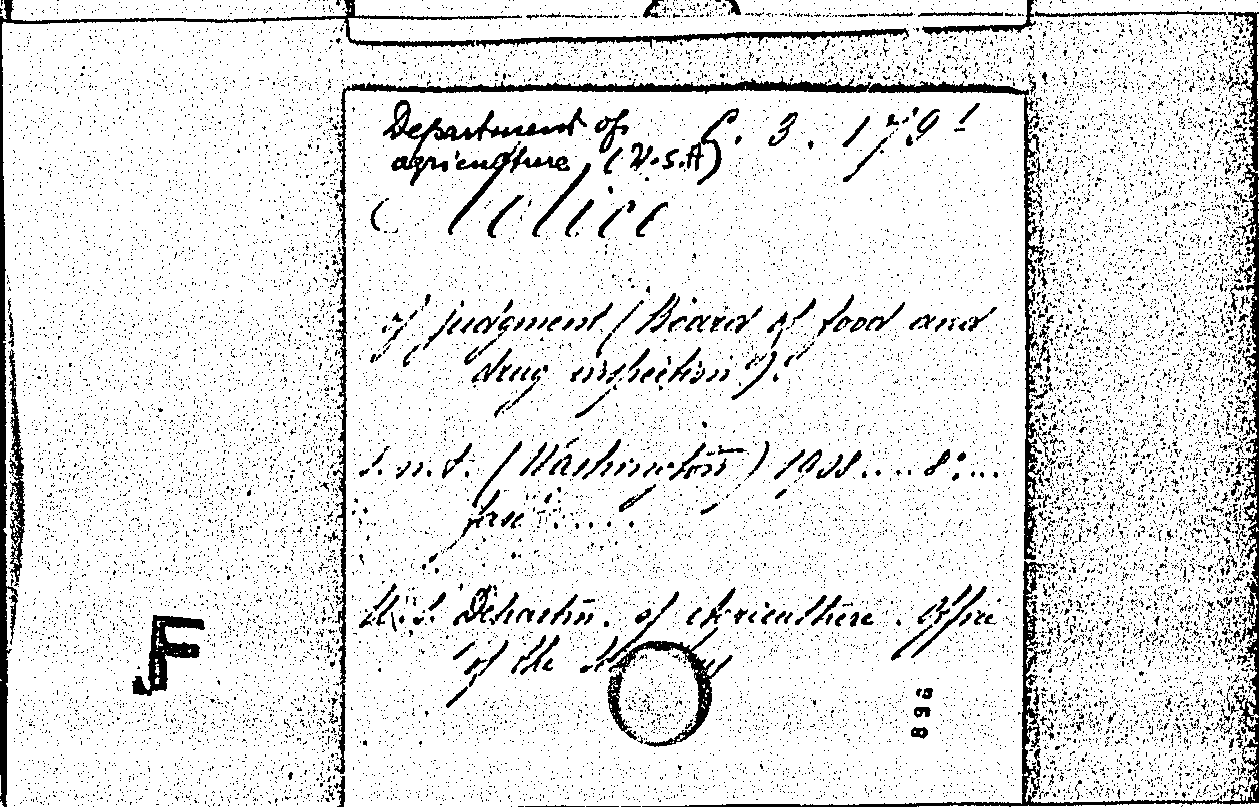 Department of
agriculture (U.S.A) 6. 3. 1791
Notice
of judgment (Board of food and
drug inspection).
s.n.t. (Washington) 1908.... 8°...
fasc.....
U.S. Departm. of Agriculture. Office
of the
896
F